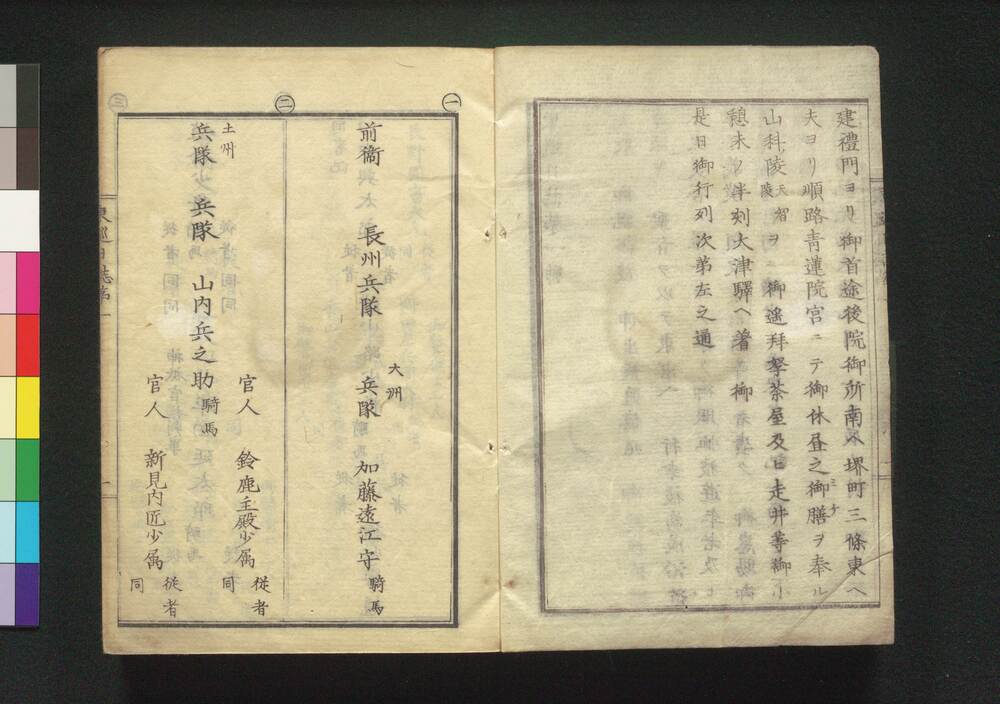 建禮門ヨリ御首途後院御所南ヘ堺町三條東ヘ
夫ヨリ順路靑蓮院宮ニテ御休昼之御膳ヲ奉ル
山科陵天智陵ヲ御遙拜拏茶屋及ヒ走井等御小
憩未ノ半刻大津驛ヘ着御
是日御行列次第左之通
一
前衞 長州兵隊 大洲 兵隊 加藤遠江守 騎馬
二
土州
兵隊 兵隊 山内兵之助 騎馬
官人 鈴鹿主殿少属 從者 同
官人 新見内匠少属 從者 同
三
東巡日誌第一